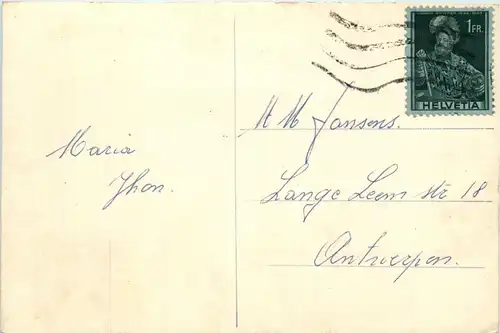 Maria
Jhon.
1 FR.
HELVETIA
M M Jansens.
Lange Leem str 18
Antwerpen.